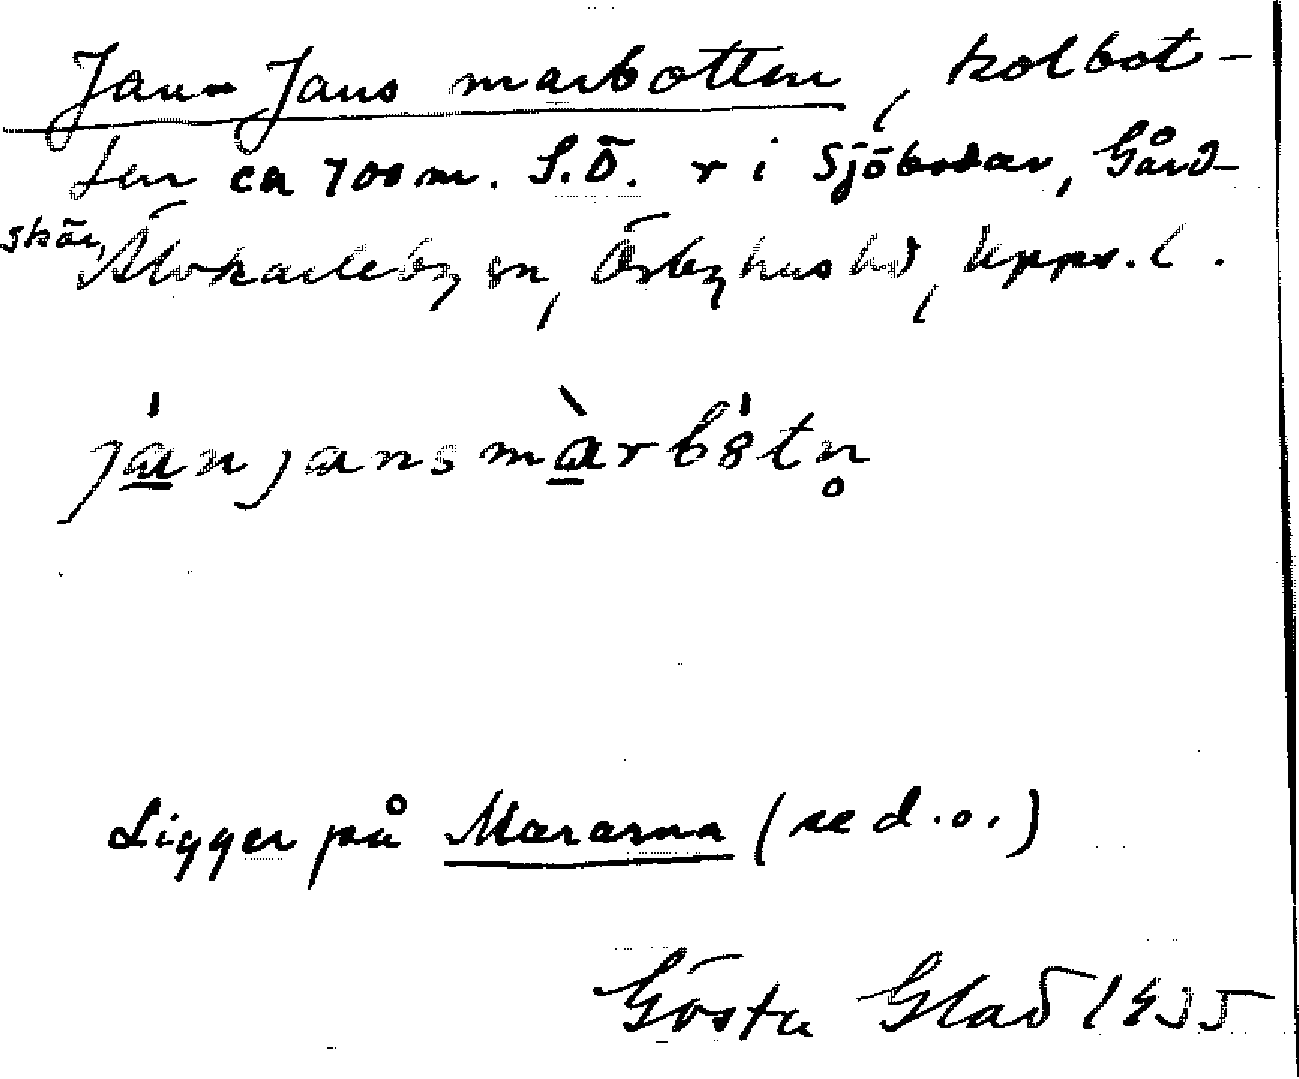 Jan-Jans marbotten, kolbot-
ten ca 700 m. S.Ö. r i Sjöbodar, Gård-
skär, Älvkarleby sn, Örbyhus hd, Upps. l.
jánjansmàrbòtn̥
Ligger på Mararna (se d.o.)
Gösta Glad 1935